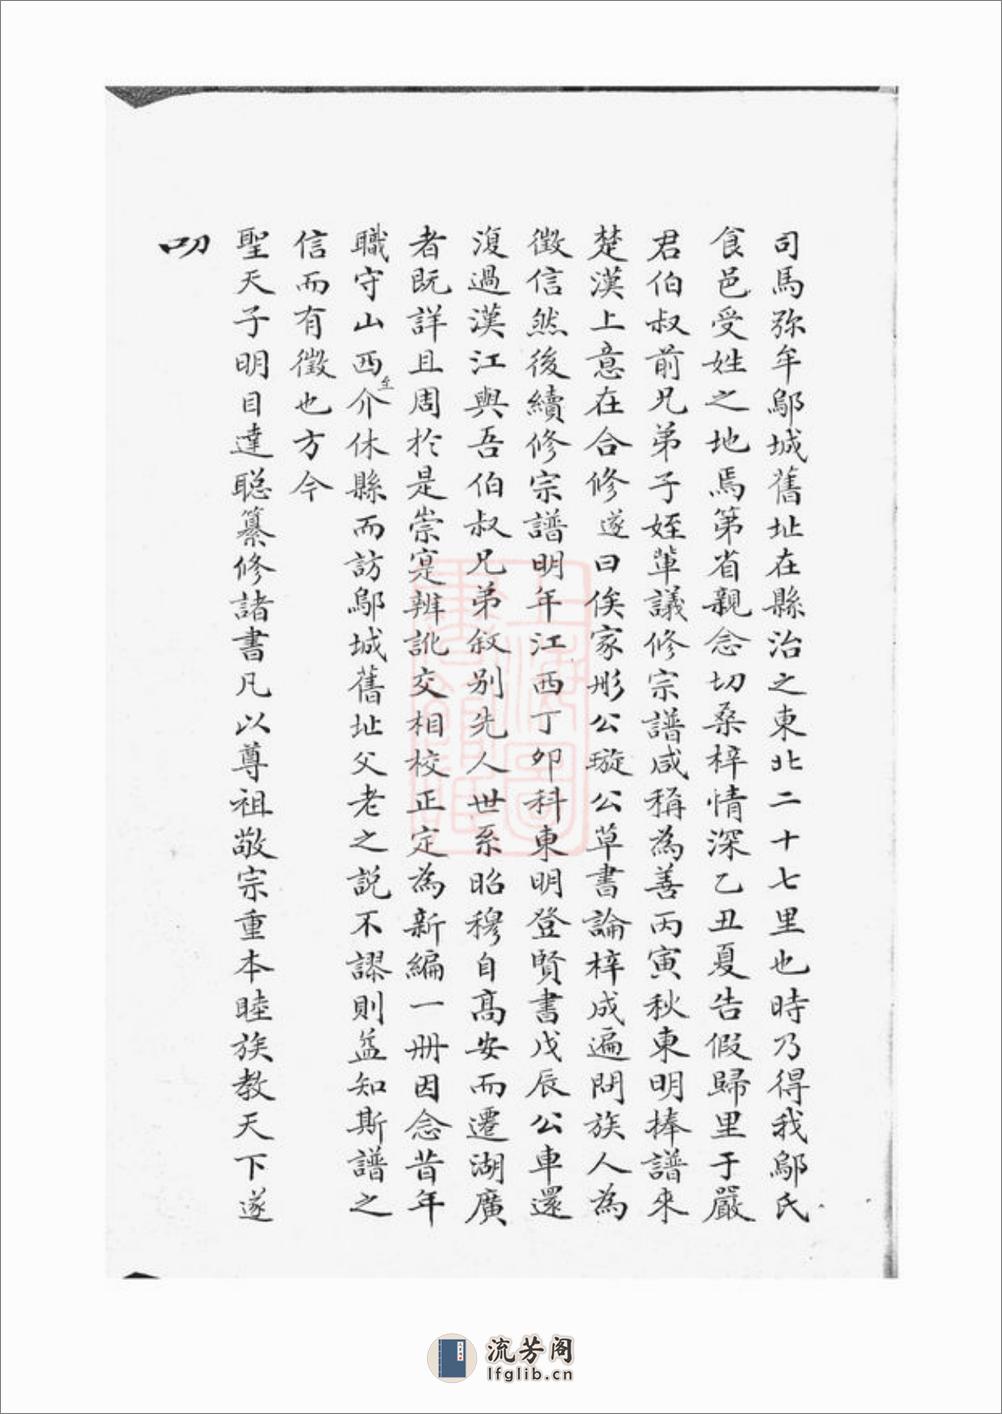 司馬弥牟鄔城舊址在縣治之東北二十七里也時乃得我鄔氏
食邑受姓之地焉第省親念切桑梓情深乙丑夏告假歸里于嚴
君伯叔前兄弟子姪軰議修宗譜咸稱為善丙寅秋東明捧譜來
楚漢上意在合修遂曰俟家彤公璇公草書論梓成遍閱族人為
徵信然後續修宗譜明年江西丁卯科東明登賢書戊辰公車還
復過漢江與吾伯叔兄弟敘別先人世系昭穆自高安而遷湖廣
者既詳且周於是崇寔辨訛交相校正定為新編一冊因念昔年
職守山西至介休縣而訪鄔城舊址父老之說不謬則益知斯譜之
信而有徵也方今
聖天子明目達聰纂修諸書凡以尊祖敬宗重本睦族教天下遂
叨
上海圖書館藏
流芳阁
lfglib.cn